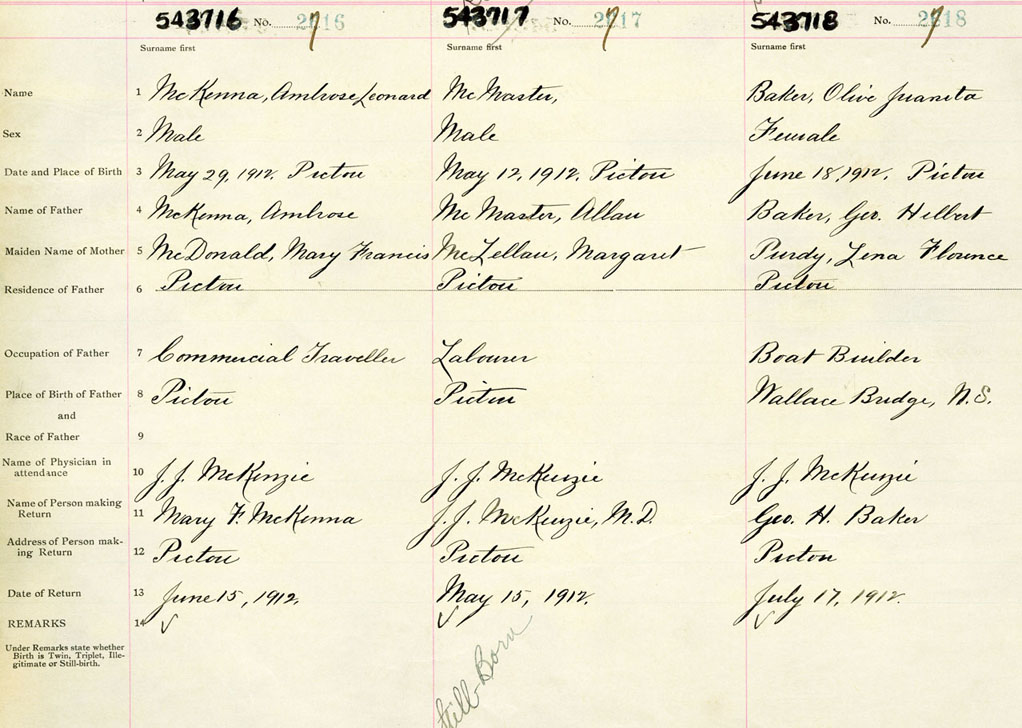 543716 No. 2716 543717 No. 2717 543718 No. 2718
Surname first Surname first Surname first
Name 1 McKenna, Ambrose Leonard McMaster, Baker, Olive Juanita
Sex 2 Male Male Female
Date and Place of Birth 3 May 29, 1912. Pictou May 12, 1912. Pictou June 18, 1912. Pictou
Name of Father 4 McKenna, Ambrose McMaster, Allan Baker, Geo. Hilbert
Maiden Name of Mother 5 McDonald, Mary Francis McLellan, Margaret Purdy, Lena Florence
Residence of Father 6 Pictou Pictou Pictou
Occupation of Father 7 Commercial Traveller Labourer Boat Builder
Place of Birth of Father 8 Pictou Pictou Wallace Bridge, N.S.
and
Race of Father 9
Name of Physician in
attendance 10 J. J. McKenzie J. J. McKenzie J. J. McKenzie
Name of Person making
Return 11 Mary F. McKenna J. J. McKenzie, M.D. Geo. H. Baker
Address of Person mak-
ing Return 12 Pictou Pictou Pictou
Date of Return 13 June 15, 1912. May 15, 1912. July 17, 1912.
REMARKS 14 ✓ ✓ ✓
Under Remarks state whether
Birth is Twin, Triplet, Ille-
gitimate or Still-birth.
Still-Born